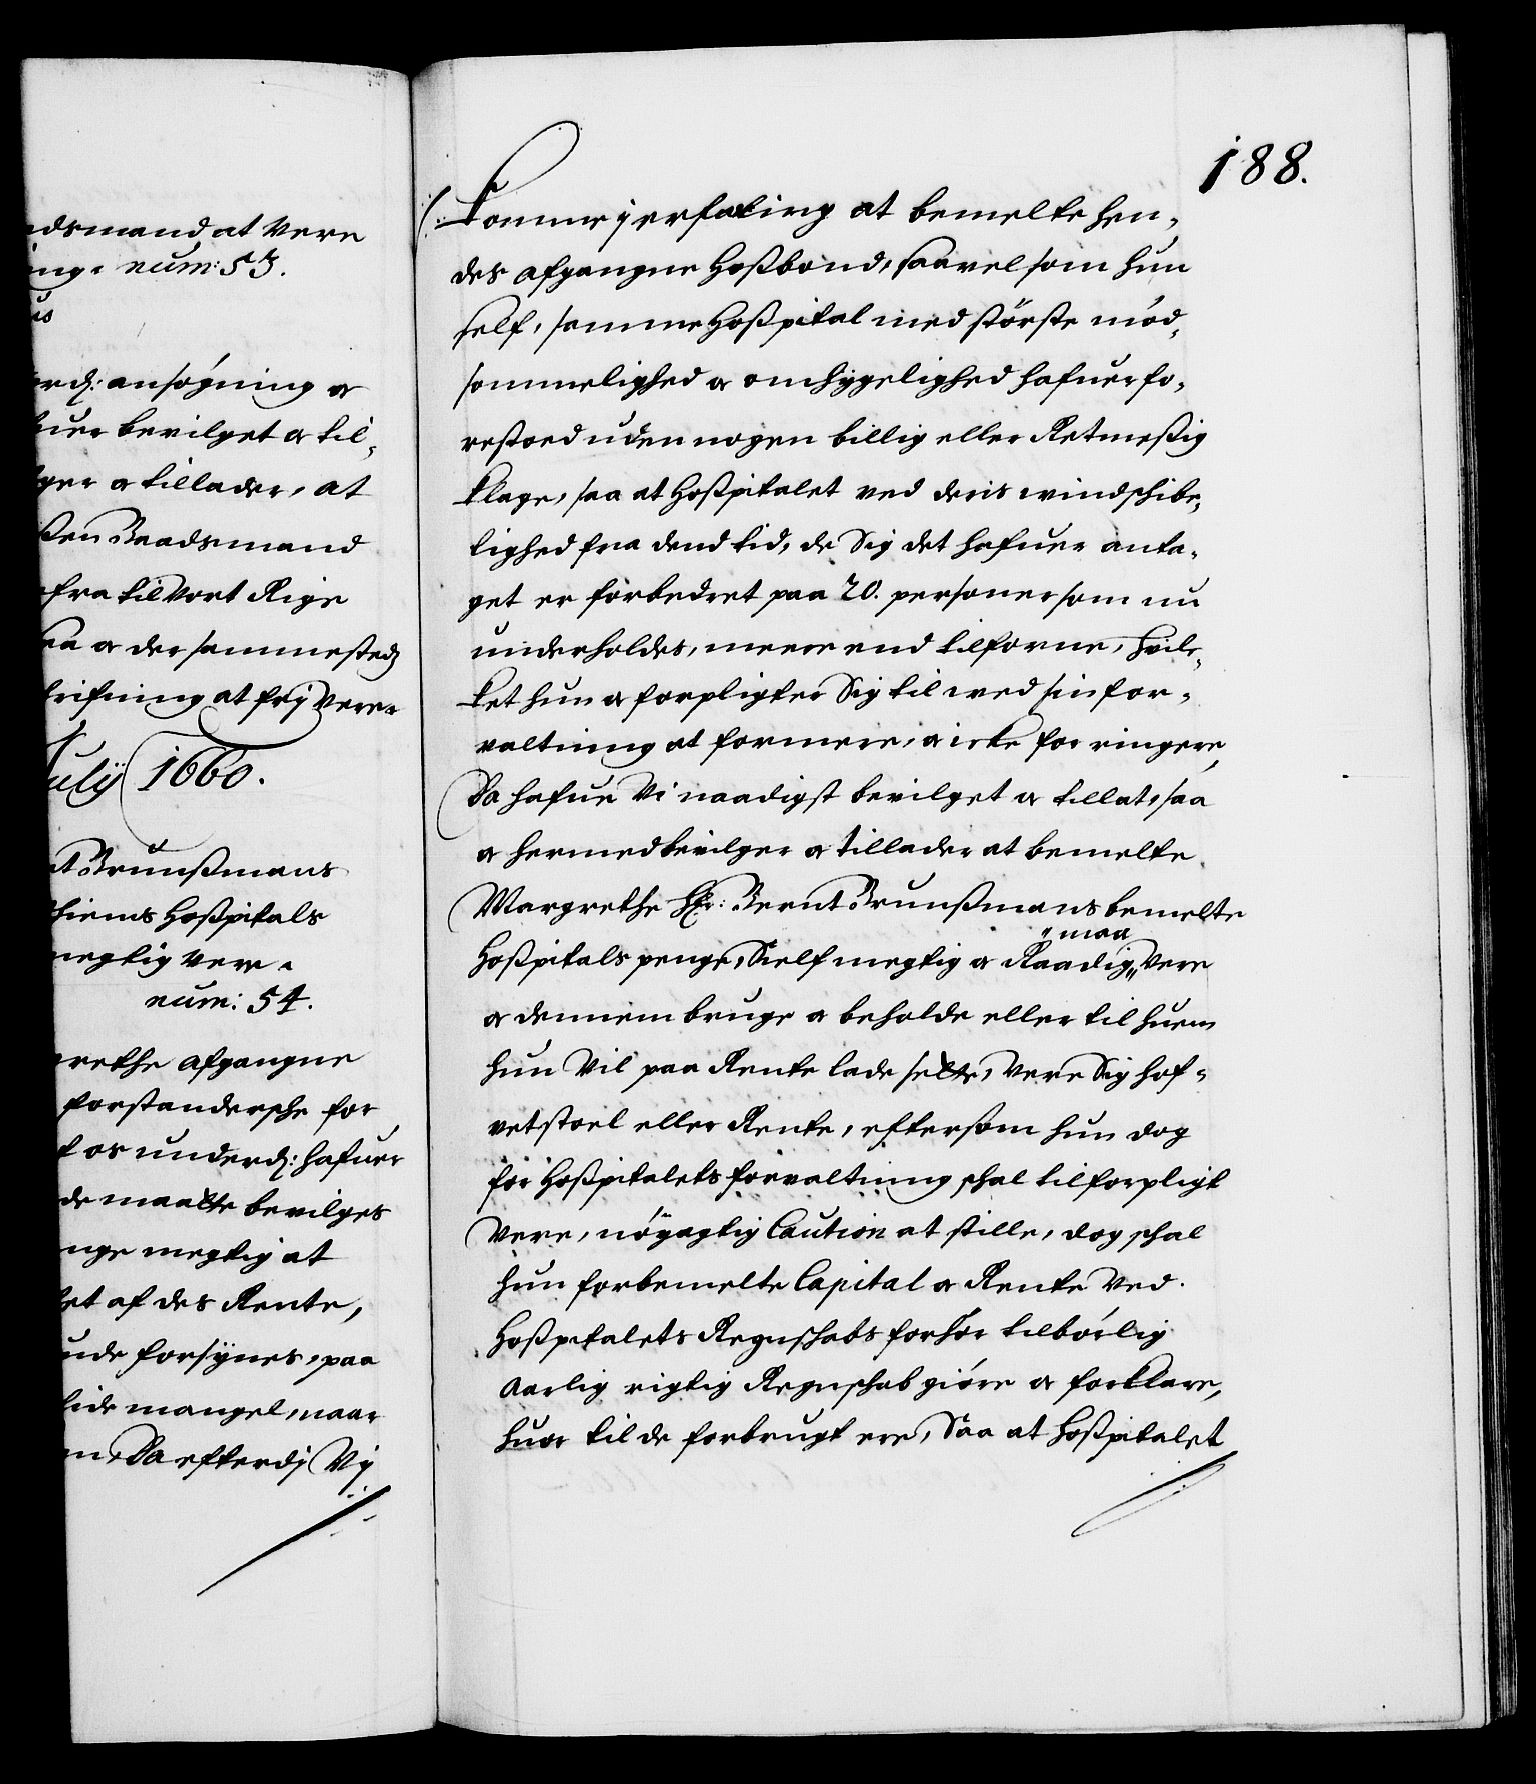 dsmand at Vere
ing. num: 53.
us
erd: ansøgning oc
uer bevilget oc til-
ger oc tillader, at
ßen Baadsmand
fra til Vort Rige
aa oc der sammested
krifning at frj Vere
July 1660.
t Brunßmans
hiems Hoßpitals
megtig Vere.
num: 54.
rethe afgangne
forstandersche for
t os underd: hafuer
de maatte bevilges
nge megtig at
et af des Rente,
nde forsÿnes, paa
lide mangel, naar
n, Da efterdj Vj
188.
komme j erfaring at bemelte hen-
des afgangne Hoßbond, saavel som hun
self, samme Hoßpital med største mød-
sommelighed oc omhÿgelighed hafuer fo-
restaaed uden nogen billig eller Retmeßig
klage, saa at Hoßpitalet ved deris windschibe-
lighed fra dend tid, de Sig det hafuer anta-
get er forbedret paa 20. personer som nu
underholdes, meere end tilforne, hvil-
ket hun oc forpligter Sig til med sin for-
valtning at formere, oc icke forringere,
Da hafue Vi naadigst bevilget oc tillat, saa
oc hermed bevilger oc tillader at bemelte
Margrethe Hr: Bernt Brunßmans bemelte
"maa
Hoßpitals penge, Sielf megtig oc Raadig" Vere
oc dennem bruge oc beholde eller til huem
hun Vil paa Rente lade sette, Vere Sig hof-
vetstoel eller Rente, eftersom hun dog
for Hoßpitalets forvaltning schal tilforpligt
Vere, nøÿagtig Caution at stille, dog schal
hun forbemelte Capital oc Rente Ved
Hoßpitalets Regnschabs forhør tilbørlig
Aarlig rigtig Regnschab giøre oc forklare,
huor til de forbrugt ere, Saa at Hoßpitalet